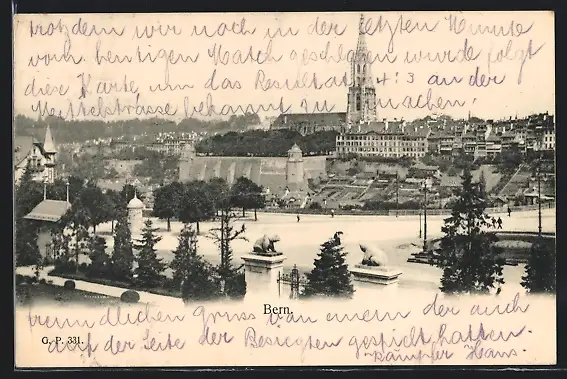 trotzdem wir noch in der letzten Minute
vom heutigen Match geschlagen wurde folgt
diese Karte, um das Resultat 4:3 an der
Muttelstrasse bekannt zu machen.
Bern.
freundlichen Gruss von einem der auch
G. P. 331.
auf der Seite der Besiegten gespielt hatten
Kämpfer Hans.